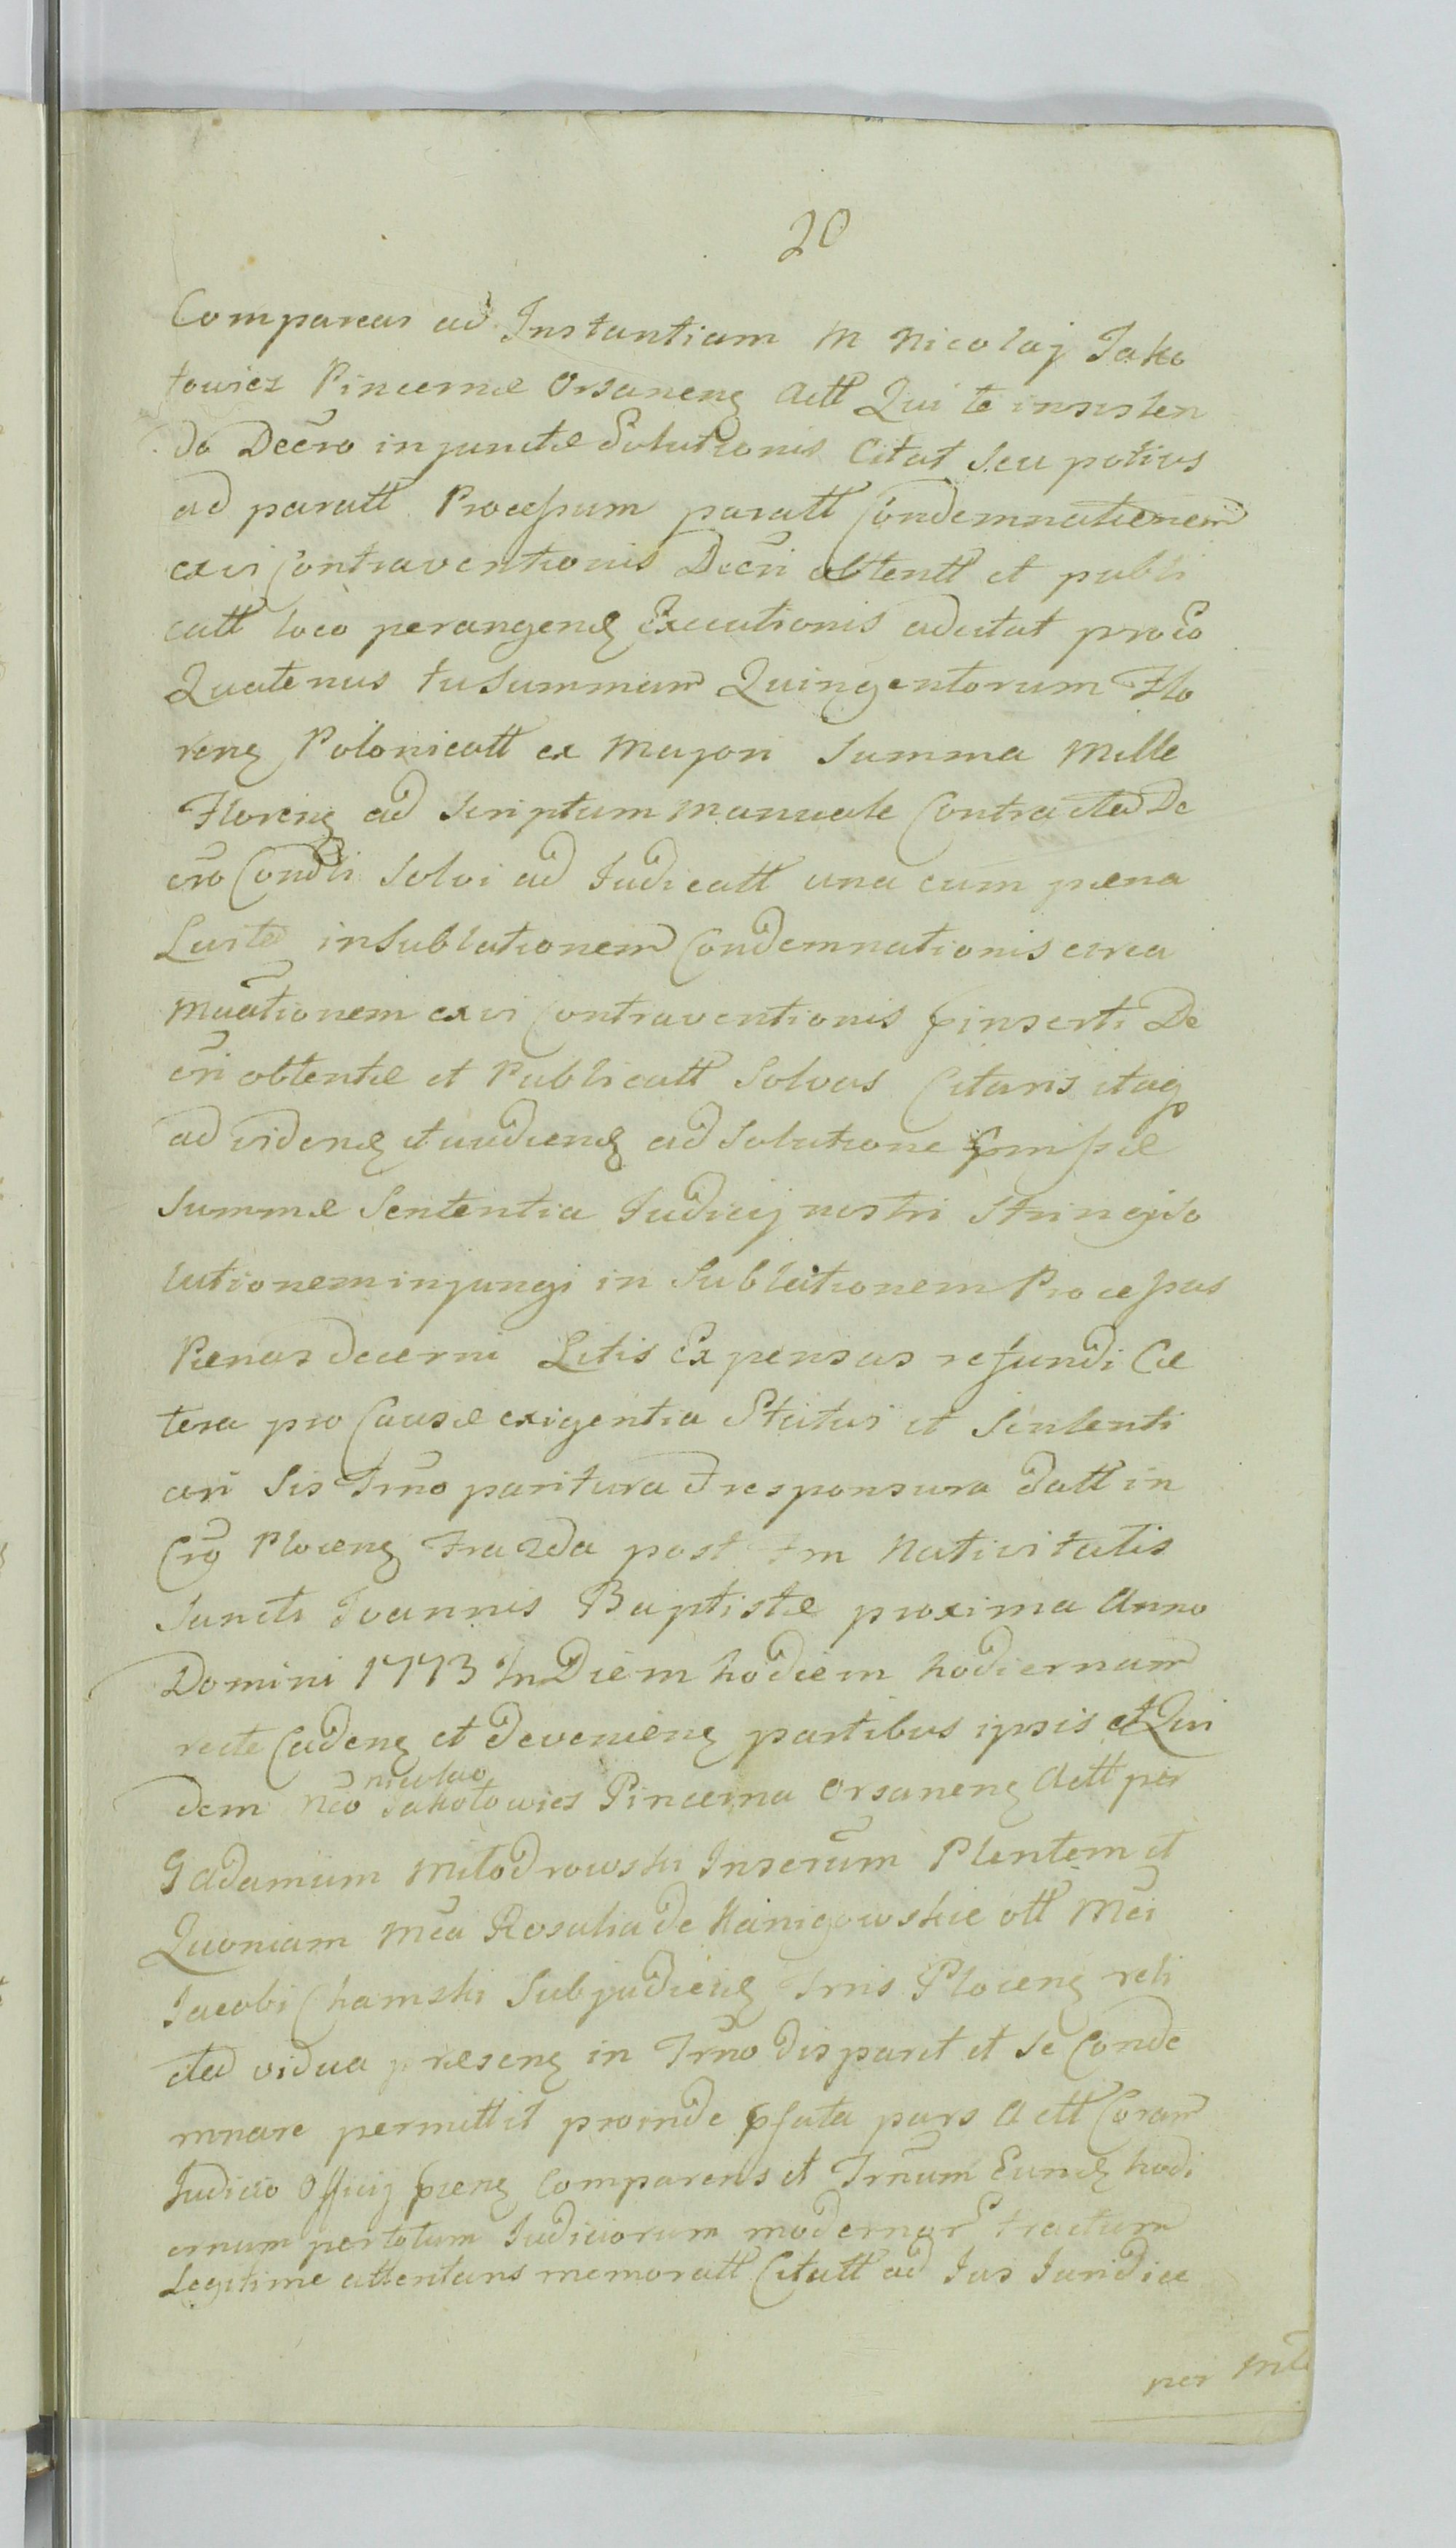 20
Compareas ad Instantiam M Nicolaj Jako
towicz Pincernæ Orsaneng Actt Qui te insisten
do Decro injunctæ Solutionis Citat seu potius
ad paratt Processum paratt Condemnationem
ex vi Contraventionis Decri obtentt et publi
catt loco perangenđ Executionis adcitat pro eo
Quatenus tu Summam Quingentorum Flo
reng Polonicatt ex Majori Summa Mille
Floreng ad Scriptum Manuale Contracta De
cro Condli Solvi ad Judicatt una cum pæna
Luita in Sublationem Condemnationis circa
Muationem ex vi Contraventionis pinserti De
cri obtentæ et Publicatt Solvas Citaris itaq
ad videnđ et audienđ ad Solutione pmissæ
Summæ Sententia Judicij nostri Stringi So
lutionem injungi in Sublationem Processus
Pænas decerni Litis Expensas refundi Cæ
tera pro Causæ exigentia Statui et Sententi
ari Sis Trno paritura et responsura datt in
Cro Ploceng Fra 2da post Fm Nativitatis
Sancti Joannis Baptistæ proxima Anno
Domini 1773 In Diem hodiem hodiernum
recte Cadeng et Devenieng partibus ipsis et Qui
dem Nco nicolao Jakotowicz Pincerna Orsaneng Actt per
G Adamum Miłodrowski Inserum Plentem et
Quoniam Mca Rosalia de Kanigowskie ott Mci
Jacobi Chamski Subjudicis Trris Ploceng reli
cta vidua præseng in Trno disparet et se Conde
mnare permittit proinde pfata pars Actt Coram
Judicio Officij pseng Comparens et Trnum Eundđ hodi
ernum per totum Judiciorum modernor Tractum
Legitime attentans memoratt Citatt ad Jus Juridice
per Mi